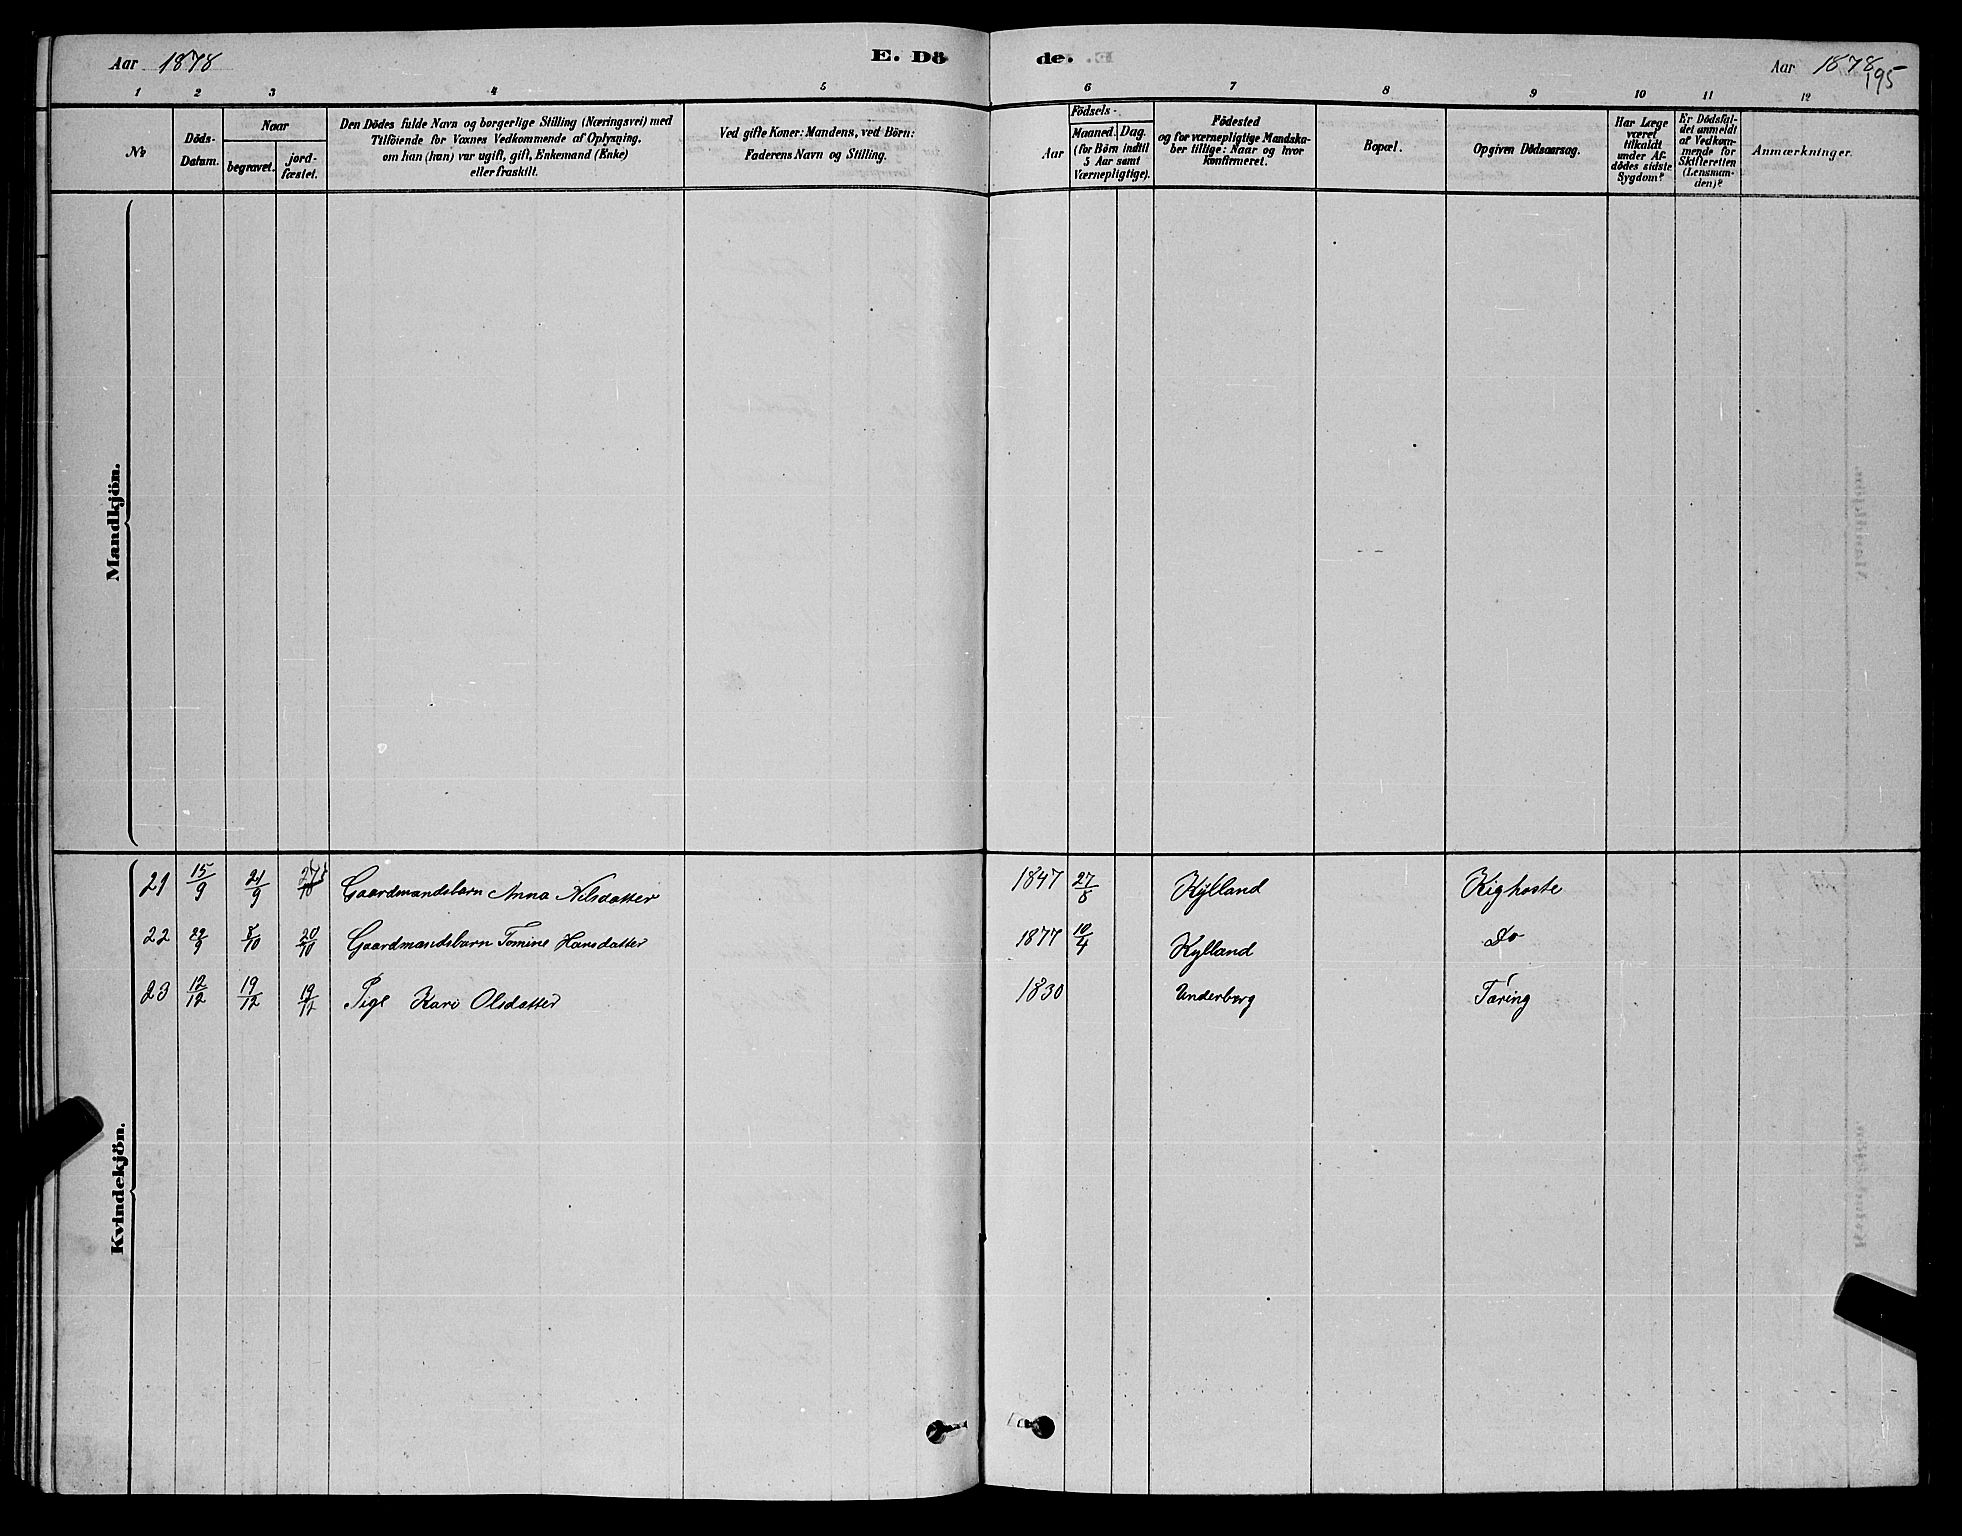 Aar 1878
E. Dö
de.
Aar 1878
195
1 2 3 4 5 6 7 8 9 10 11 12
No
Döds-
Datum.
Naar
begravet.
jord-
fæstet.
Den Dödes fulde Navn og borgerlige Stilling (Næringsvei) med
Tilföiende for Voxnes Vedkommende af Oplysning,
om han (hun) var ugift, gift, Enkemand (Enke)
eller fraskilt.
Ved gifte Koner: Mandens, ved Börn:
Faderens Navn og Stilling.
Födsels-
Aar
Maaned. Dag.
(for Börn indtil
5 Aar samt
Værnepligtige).
Födested
og for værnepligtige Mandska-
ber tillige: Naar og hvor
konfirmeret.
Bopæl.
Opgiven Dödsaarsag.
Har Læge
været
tilkaldt
under Af-
dödes sidste
Sygdom?
Er Dödsfal-
det anmeldt
af Vedkom-
mende for
Skifteretten
(Lensman-
den)?
Anmærkninger.
Mandkjön.
Kvindekjön.
21 15/9 21/9 Gaardmandsbarn Anna Nilsdatter 1847 27/8 Kylland Kighoste
22 29/9 8/10 20/10 Gaardmandsbarn Tomine Hansdatter 1877 10/4 Kylland Do
23 12/12 19/12 19/12 Pige Kari Olsdatter 1830 Underberg Tæring